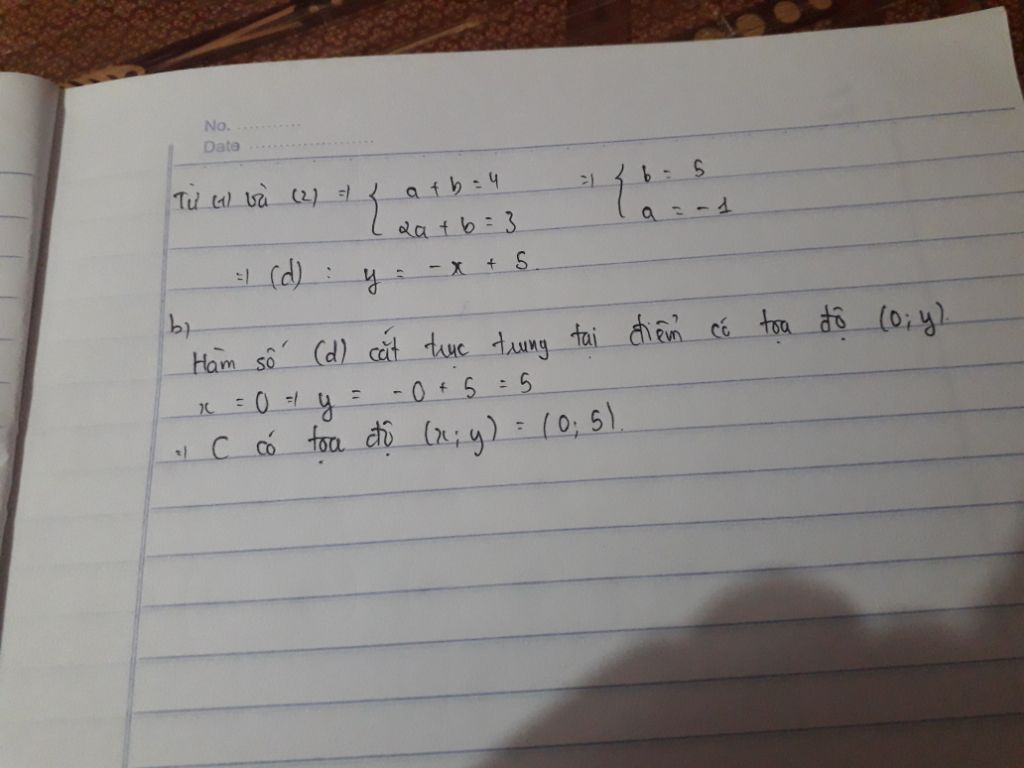 No. ..........
Date ....................
Từ (1) và (2) => { a + b = 4 => { b = 5
2a + b = 3 a = -1
=> (d) : y = -x + 5.
b)
Hàm số (d) cắt trục trung tại điểm có tọa độ (0; y).
x = 0 => y = -0 + 5 = 5
=> C có tọa độ (x; y) = (0; 5).